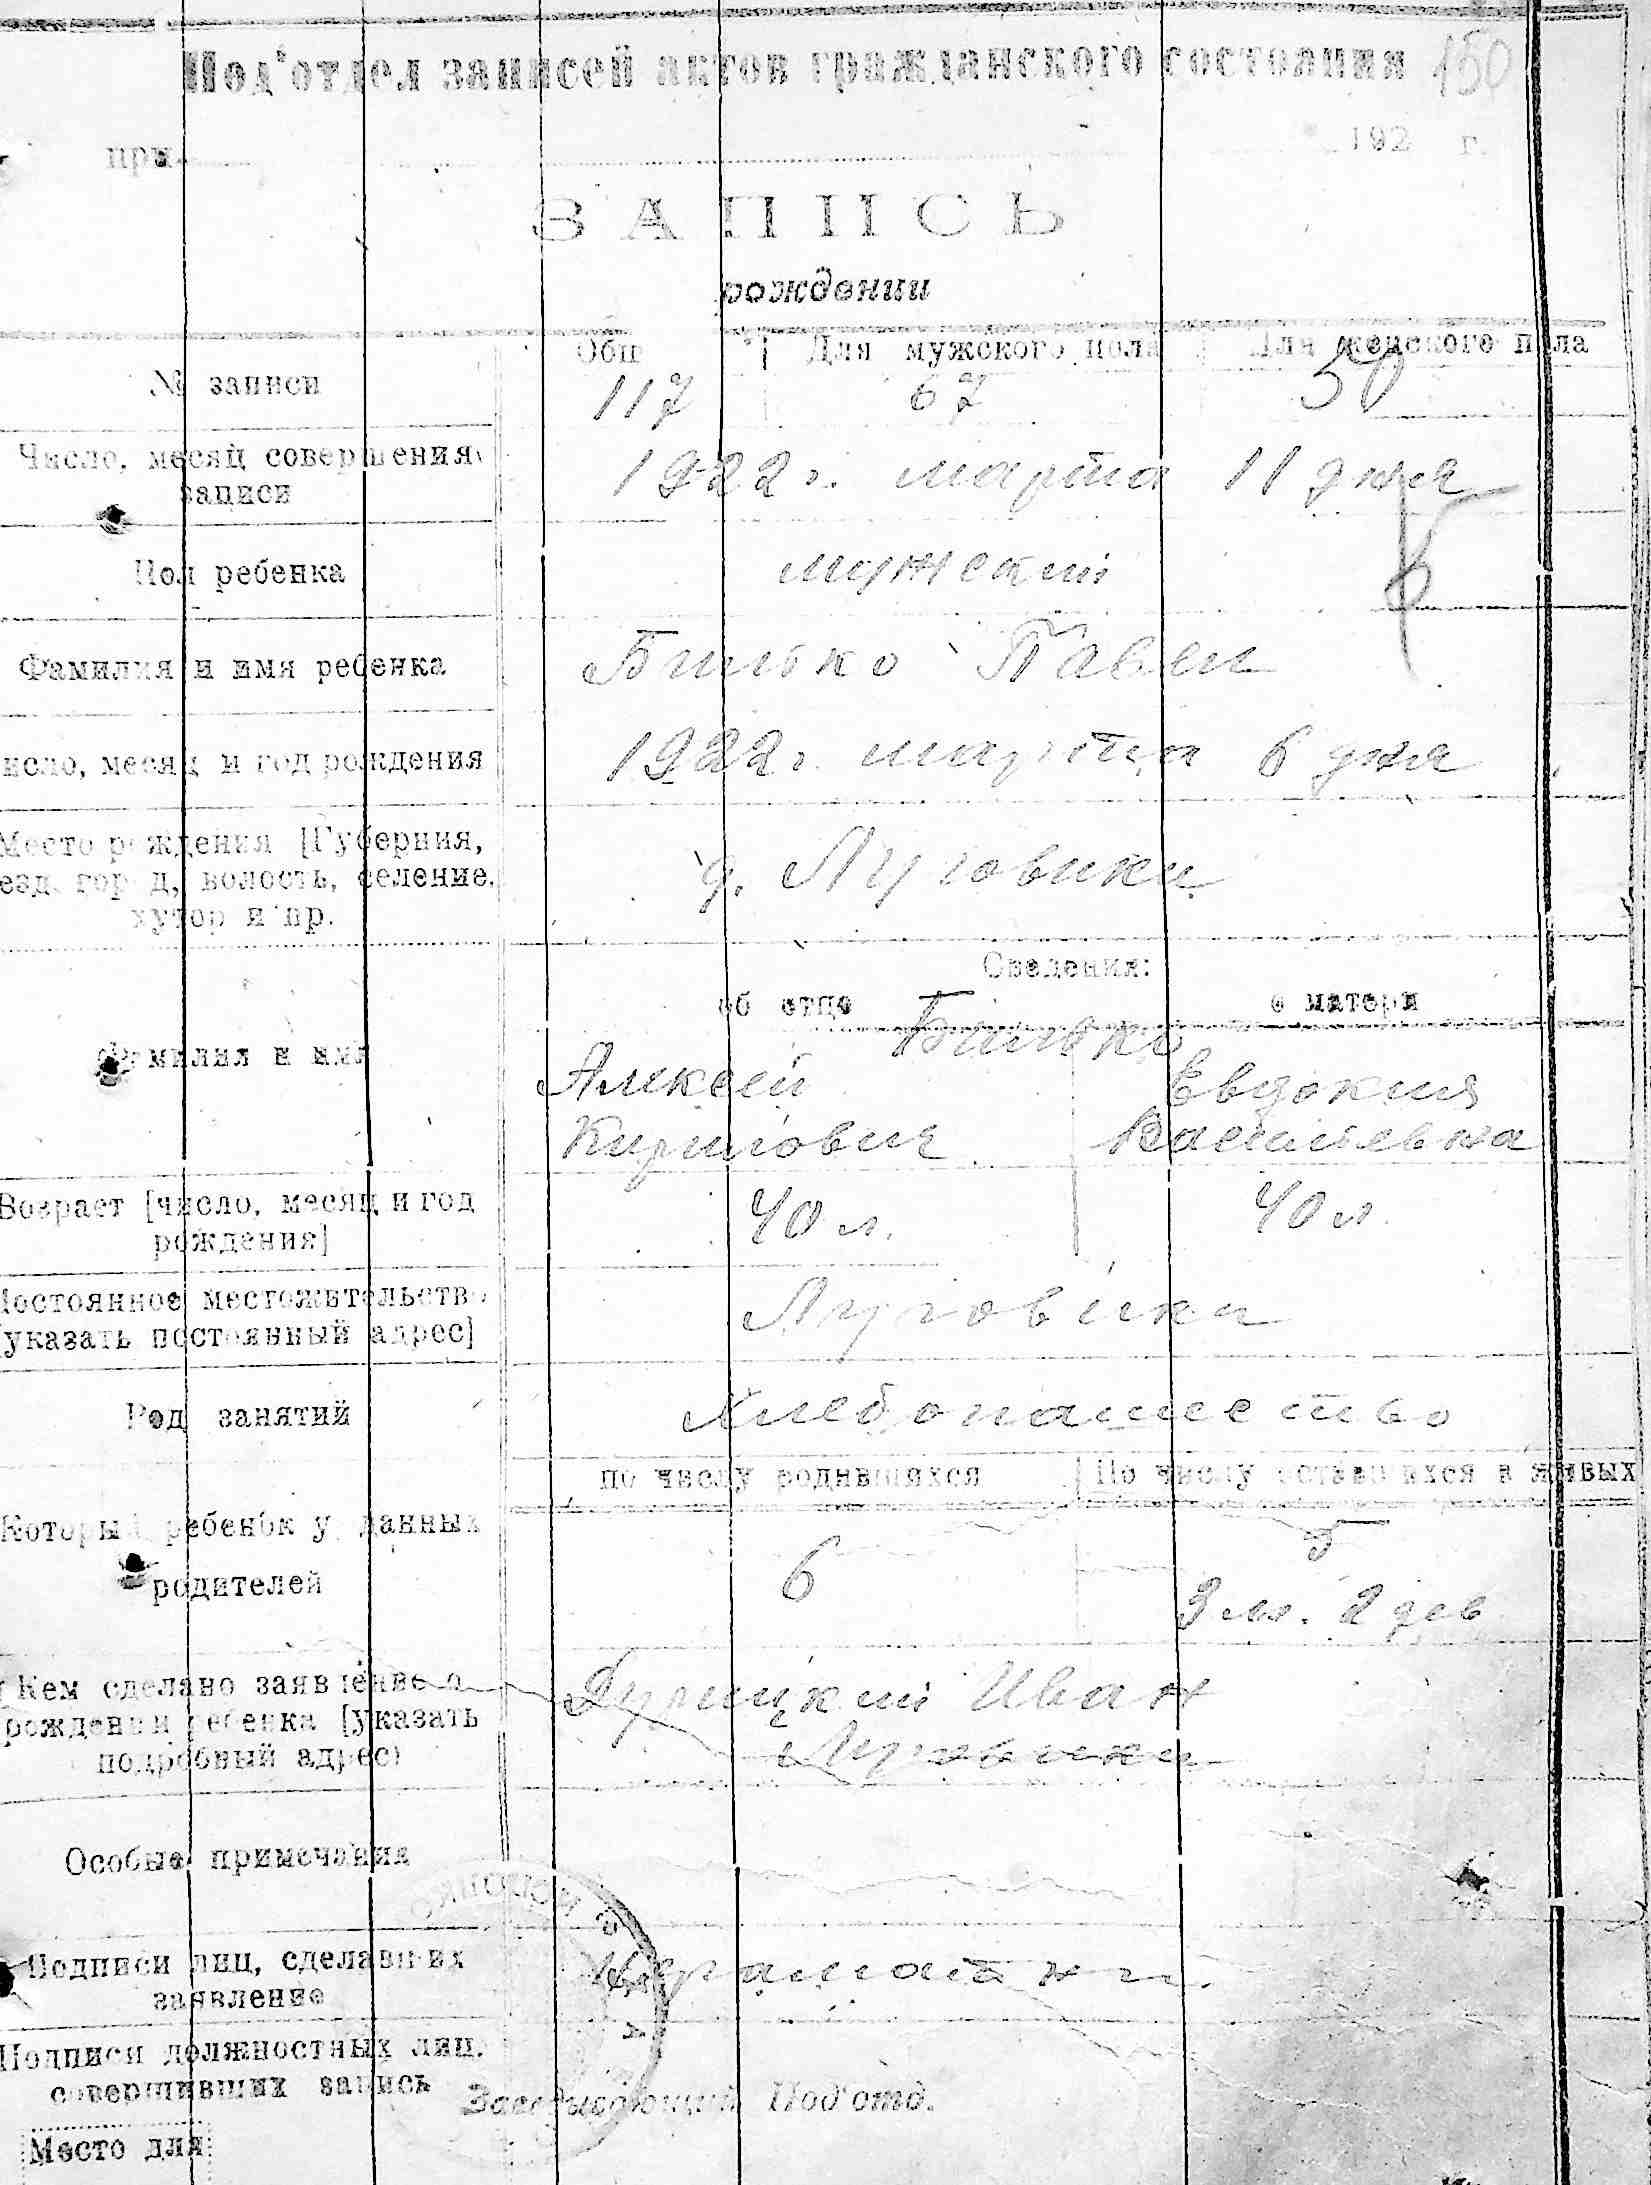 Под'отдел записей актов гражданского состояния 150
при 192 г.
ЗАПИСЬ
рождении
Общ Для мужского пола Для женского пола
№ записи 117 67 50
Число, месяц совершения 1922 г. марта 11 дня
записи
Пол ребенка мужской
Фамилия и имя ребенка Билько Павел
исло, месяц и год рождения 1922 г. марта 6 дня
Место рождения [Губерния,
езд, город, волость, селение, д. Луговики
хутор и пр.
Сведения:
об отце о матери
Билько
Фамилия и имя Алексей Евдокия
Кирилович Васильевна
Возраст [число, месяц и год 40 л. 40 л.
рождения]
Постоянное местожительство Луговики
[указать постоянный адрес]
Род занятий Хлебопашество
по числу родившихся По числу оставшихся в живых
Который ребенок у данных 6 5
родителей 3 м. 2 дев
Кем сделано заявление о Иван
рождении ребенка [указать Луговики
подробный адрес)
Особые примечания
Подписи лиц, сделавших Неграмотн
заявление
Подписи должностных лиц,
совершивших запись
Заведывающий Под'отд.
Место для